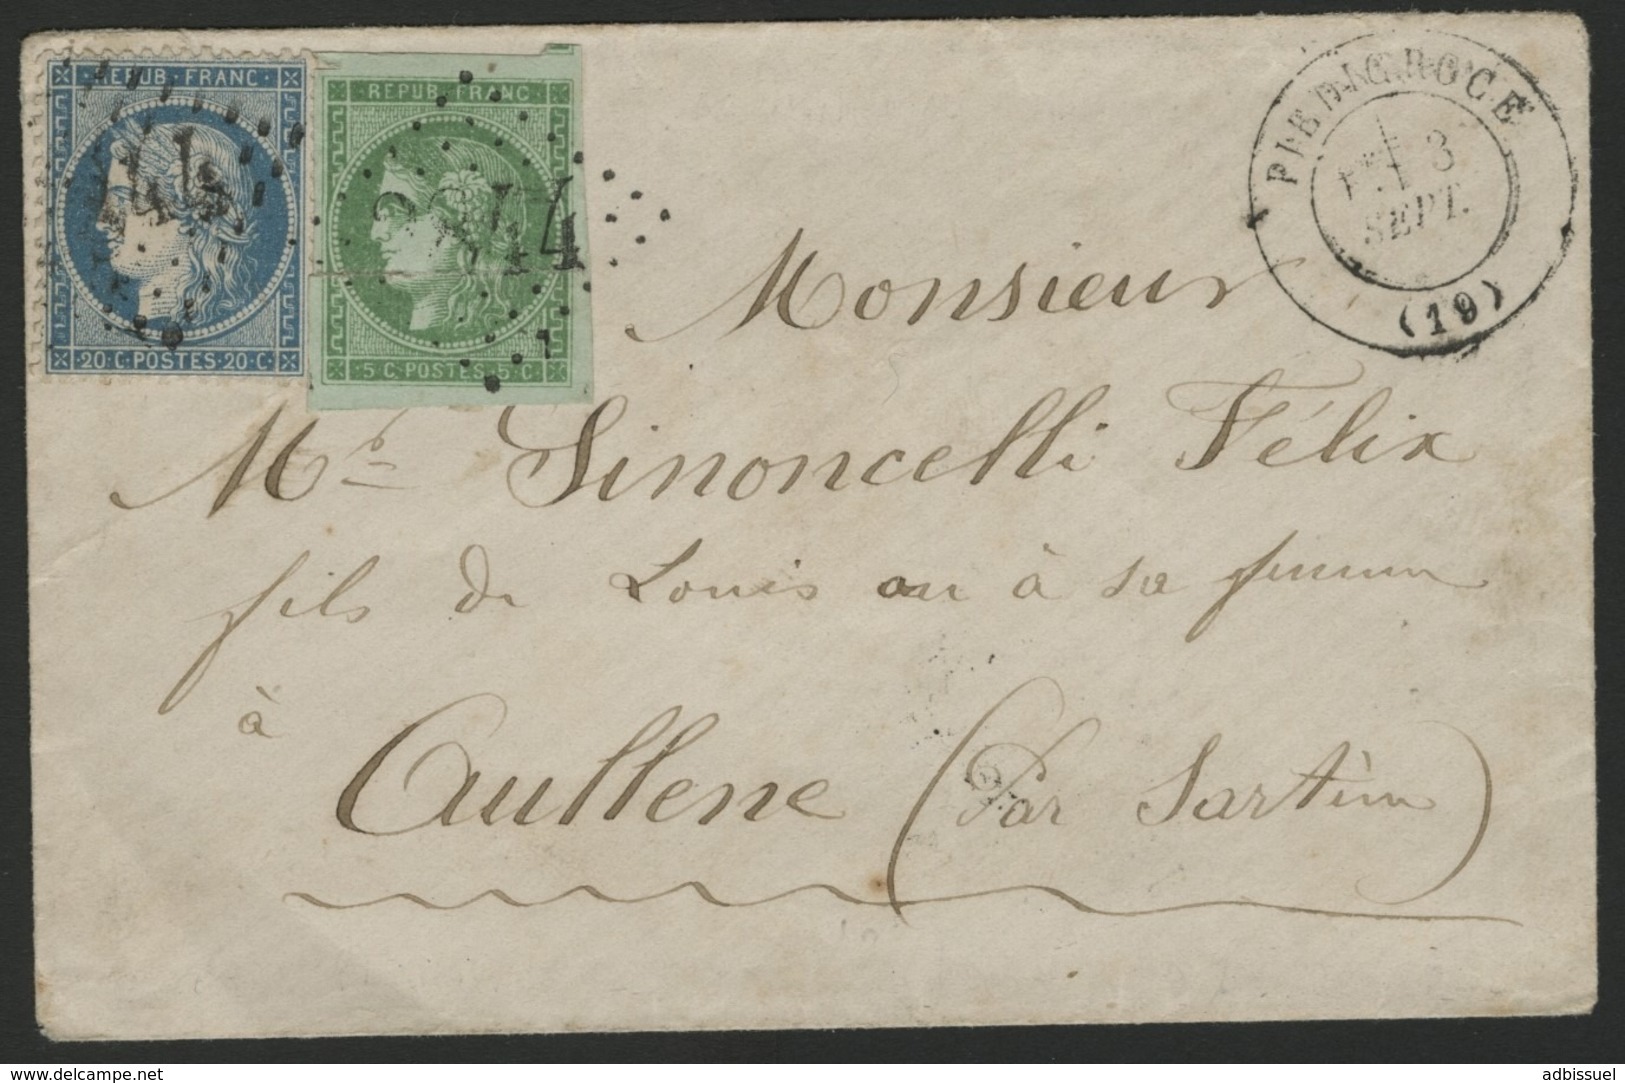 REPUB·FRANC
20·C·POSTES·20·C·
REPUB·FRANC
5·C·POSTES·5·C·
PIEDICROCE
3
SEPT.
(19)
Monsieur
Mr Sinoncelli Félix
fils de Louis ou à sa femme
à
Aullene (Par Sartène)
www.delcampe.net
adbissuel